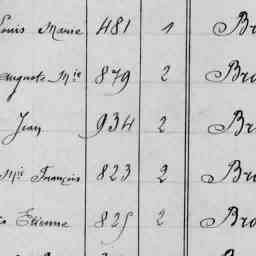 Louis Marie 481 1 Br
Mie 879 2 Bro
Jean 934 2 Bro
Mie François 823 2 Bro
Etienne 825 2 Bro